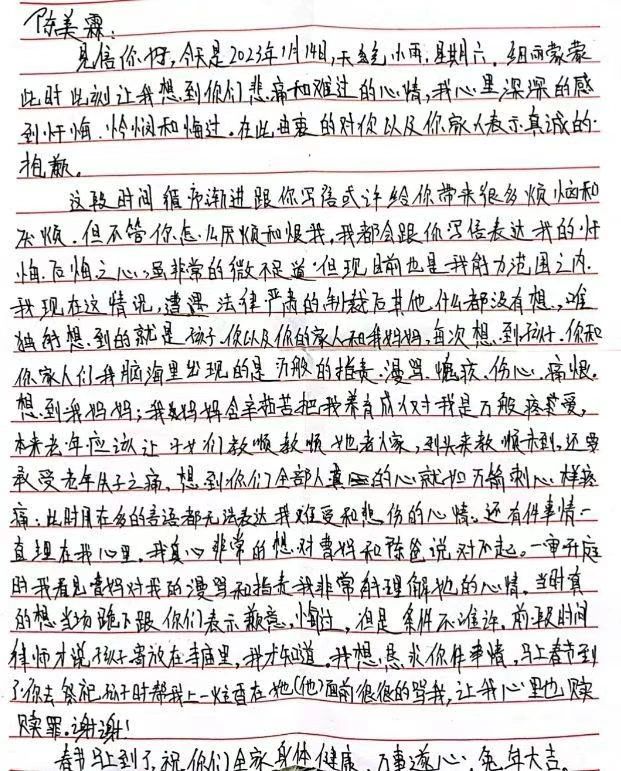 陈美霖:
见信你好,今天是2023年1月14日,天气小雨,星期六。细雨蒙蒙
此时此刻让我想到你们悲痛和难过的心情,我心里深深的感
到忏悔、怜悯和悔过。在此由衷的对你以及你家人表示真诚的
抱歉。
这段时间循序渐进跟你写信或许给你带来很多烦恼和
厌烦。但不管你怎么厌烦和恨我,我都会跟你写信表达我的忏
悔、后悔之心,虽非常的微不足道,但现目前也是我能力范围之内.
我现在这情况,遭遇法律严肃的制裁后其他什么都没有想,唯
独能想到的就是孩子、你以及你的家人和我妈妈,每次想到孩子、你和
你家人们我脑海里出现的是万般的指责、漫骂、愧疚、伤心、痛恨。
想到我妈妈;我妈妈含辛茹苦把我养育成人对于我是万般疼爱,
本来老年应该让子女们教顺教顺她老人家,到头来教顺未到,还要
承受老年失子之痛。想到你们全部人真的心就如万箭刺心样疼
痛,此时用在多的言语都无法表达我难受和悲伤的心情。还有件事情一
直埋在我心里,我真心非常的想对曹妈和陈爸说对不起。一审开庭
时我看见曹妈对我的漫骂和指责我非常能理解她的心情。当时真
的想当场跪下跟你们表示歉意,悔过,但是条件不准许。前段时间
律师才说孩子寄放在寺庙里,我才知道,我想恳求你件事情,马上春节到
了你去祭祀孩子时帮我上一炷香在她(他)面前很很的骂我,让我心里也赎
赎罪.谢谢!
春节马上到了,祝你们全家身体健康、万事遂心、兔年大吉。